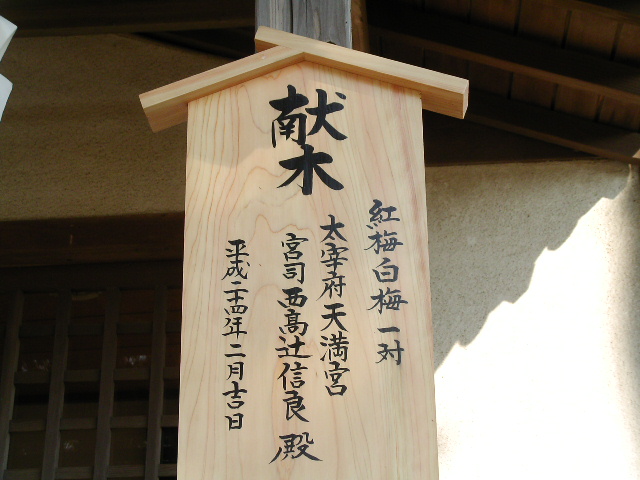 献木
紅梅白梅一対
太宰府天満宮
宮司西高辻信良殿
平成二十四年二月吉日